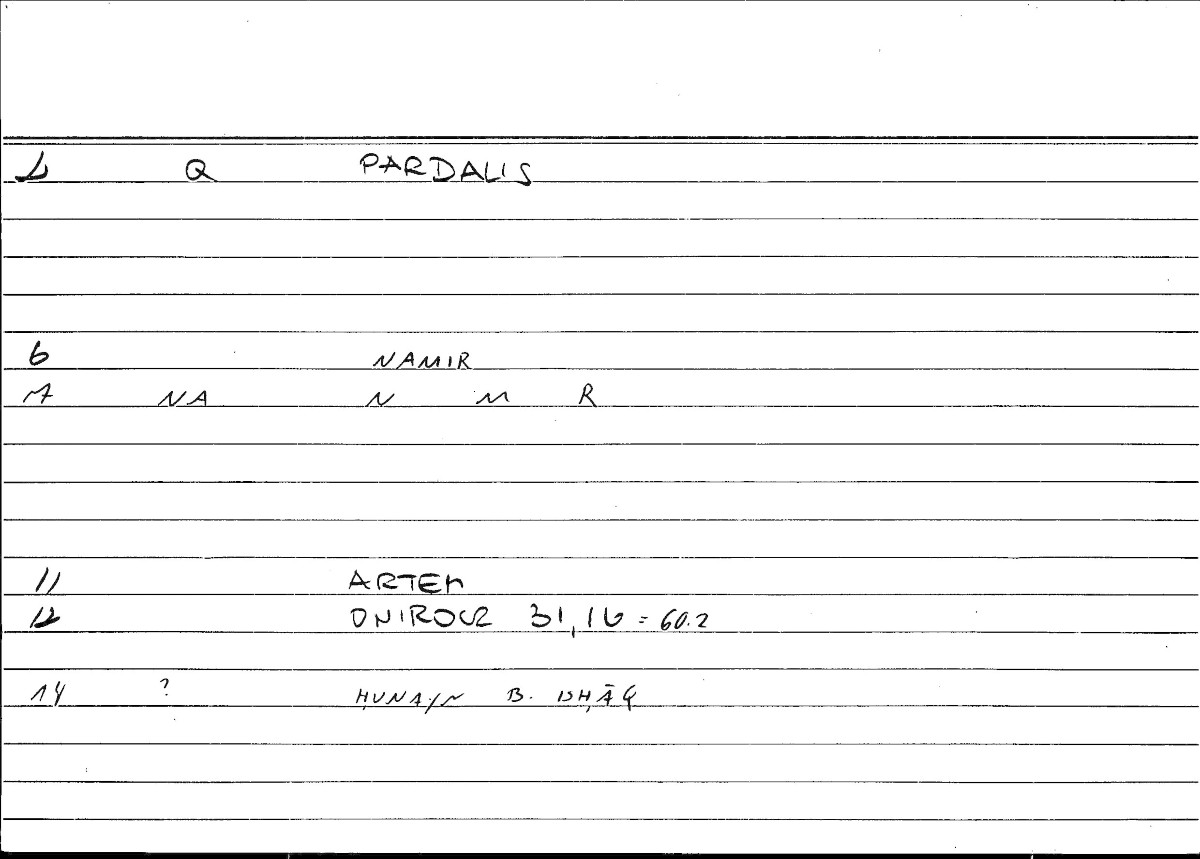 1 Q PARDALIS
6 NAMIR
7 NA N M R
11 ARTEM
12 ONIROCR 31,16 = 60.2
14 ? ḤUNAYN B. ISḤĀQ